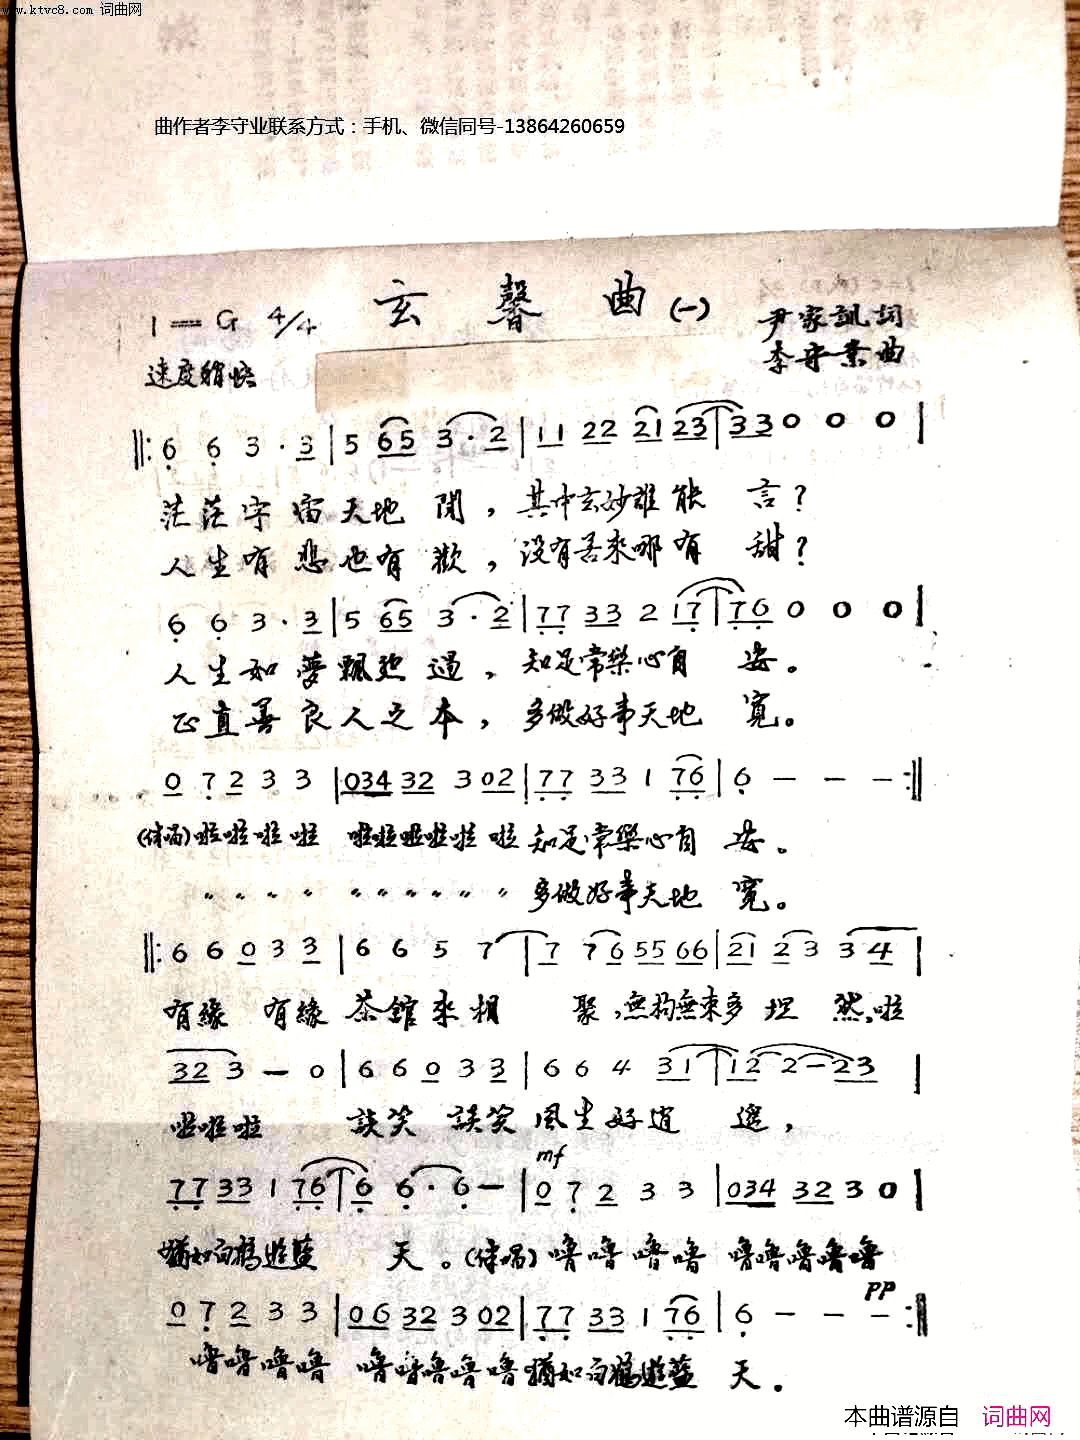 www.ktvc8.com 词曲网
曲作者李守业联系方式：手机、微信同号-13864260659
玄馨曲(一)
1=G 4/4
尹家訊詞
李守業曲
速度稍快
‖: 6̣ 6̣ 3 · 3 | 5 65 3 · 2 | 11 22 21 23 | 33 0 0 0 |
茫茫宇宙天地間，其中玄妙誰能言？
人生有悲也有歡，没有苦來哪有甜？
6̣ 6̣ 3 · 3 | 5 65 3 · 2 | 7̣7̣ 33 2 17̣ | 7̣6̣ 0 0 0 |
人生如夢飄然過，知足常樂心自安。
正直善良人之本，多做好事天地寬。
0 7̣ 2 3 3 | 034 32 3 02 | 7̣7̣ 33 1 7̣6̣ | 6̣ — — — :‖
(伴唱)啦啦啦啦 啦啦啦啦啦啦知足常樂心自安。
〃〃〃〃 〃〃〃〃〃〃多做好事天地寬。
‖: 6 6 0 3 3 | 6 6 5 7 | 7 7 6 55 66 | 21 2 3 3 4 |
有緣 有緣 茶館來相聚，無拘無束多坦然，啦
32 3 — 0 | 6 6 0 3 3 | 6 6 4 31 | 12 2 — 23 |
啦啦啦 談笑 談笑 風生好逍遥，
mf
7̣7̣ 33 1 7̣6̣ | 6̣ 6̣ · 6̣ — | 0 7̣ 2 3 3 | 034 32 3 0 |
猶如白鶴遊藍天。(伴唱)嚕嚕嚕嚕 嚕嚕嚕嚕嚕
PP
0 7̣ 2 3 3 | 06 32 3 02 | 7̣7̣ 33 1 7̣6̣ | 6̣ — — — :‖
嚕嚕嚕嚕 嚕嚕嚕嚕嚕猶如白鶴遊藍天。
本曲谱源自 词曲网